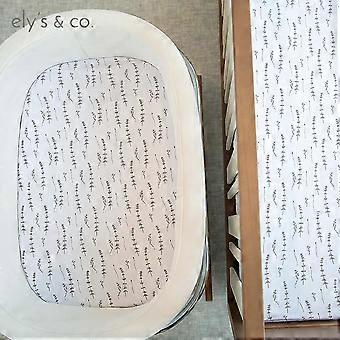 ely's & co.